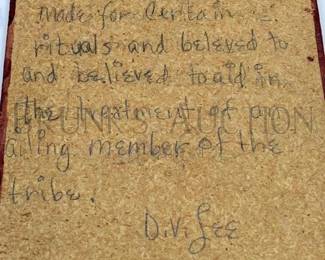 made for certain
rituals and beleved to
and believed to aid in
the treatment of a
ailing member of the
tribe.
D.V. Lee
FUNK'S AUCTION